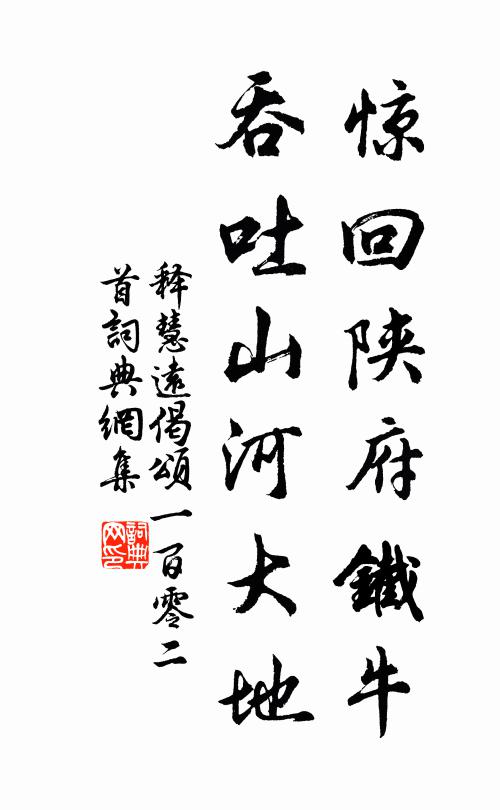 惊回陕府鐵牛
吞吐山河大地
释慧遠偈頌一百零二
首詞典網集
詞典网印